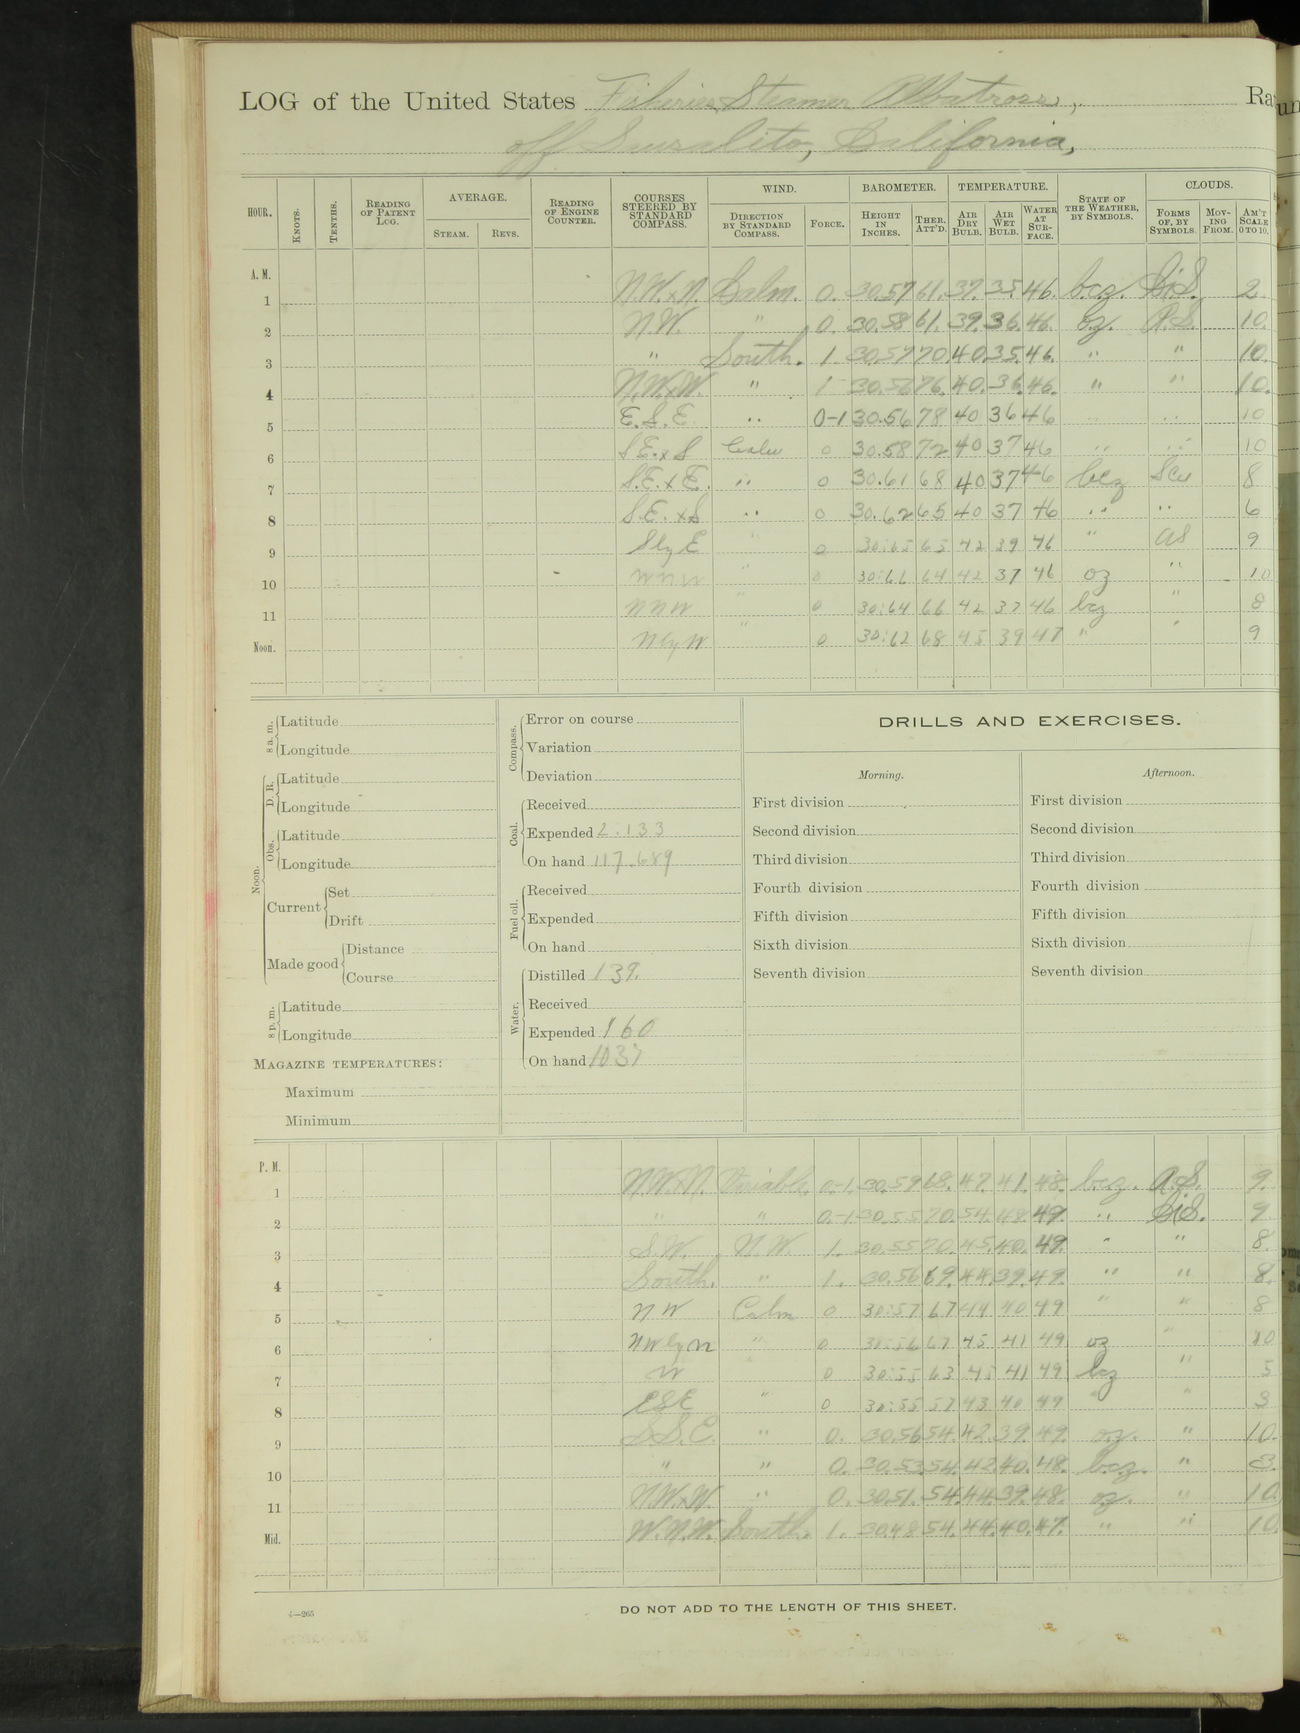 LOG of the United States Fisheries Steamer Albatross, Ra
off Sausalito, California,
HOUR. KNOTS. TENTHS. READING OF PATENT LOG. AVERAGE. STEAM. REVS. READING OF ENGINE COUNTER. COURSES STEERED BY STANDARD COMPASS. WIND. DIRECTION BY STANDARD COMPASS. FORCE. BAROMETER. HEIGHT IN INCHES. THER. ATT'D. TEMPERATURE. AIR DRY BULB. AIR WET BULB. WATER AT SURFACE. STATE OF THE WEATHER, BY SYMBOLS. CLOUDS. FORMS OF, BY SYMBOLS. MOVING FROM. AM'T SCALE 0 TO 10.
A. M.
1 N.W.xN. Calm. 0. 30.57 61. 37. 35. 46. bcz. Ci.S. 2
2 N.W. " 0. 30.58 61. 39. 36. 46. oz. A.S. 10.
3 " South. 1. 30.57 70. 40. 35. 46. " " 10.
4 N.W.xW. " 1 30.56 76. 40. 36. 46. " " 10.
5 E.S.E. " 0-1 30.56 78 40 36 46 " " 10
6 S.E.xS Calm 0 30.58 72 40 37 46 " " 10
7 S.E.xE. " 0 30.61 68 40 37 46 bcz Scu 8
8 S.E.xS " 0 30.62 65 40 37 46 " " 6
9 SbyE " 0 30:65 65 42 39 46 " AS 9
10 WNW " 0 30:66 64 42 37 46 oz " 10
11 NNW " 0 30:64 66 42 37 46 bcz " 8
Noon. NbyW " 0 30:62 68 45 39 47 " " 9
8 a. m. Latitude
Longitude
Noon. D. R. Latitude
Longitude
Obs. Latitude
Longitude
Current Set
Drift
Made good Distance
Course
8 p. m. Latitude
Longitude
MAGAZINE TEMPERATURES:
Maximum
Minimum
Compass. Error on course
Variation
Deviation
Coal. Received
Expended 2.133
On hand 117.689
Fuel oil. Received
Expended
On hand
Water. Distilled 139.
Received
Expended 160
On hand 1037
DRILLS AND EXERCISES.
Morning. Afternoon.
First division First division
Second division Second division
Third division Third division
Fourth division Fourth division
Fifth division Fifth division
Sixth division Sixth division
Seventh division Seventh division
P. M.
1 N.W.xN. Variable. 0-1. 30.59 68. 47. 41. 48. bcz. A.S. 9.
2 " " 0-1. 30.55 70. 54. 48. 49. " Ci.S. 9
3 S.W. N.W. 1. 30.55 70. 45. 40. 49. " " 8.
4 South. " 1. 30.56 69. 44. 39. 49. " " 8.
5 NW Calm 0 30:57 67 44 40 49 " " 8
6 NWbyN " 0 30:56 67 45 41 49 oz " 10
7 W 0 30:55 63 45 41 49 bcz " 5
8 ESE " 0 30:55 57 43 40 49 " " 3
9 S.S.E. " 0. 30.56 54. 42. 39. 49. oz. " 10.
10 " " 0. 30.53 54. 42. 40. 48. bcz. " 3.
11 N.W.xW. " 0. 30.51. 54. 44. 39. 48. oz. " 10.
Mid. W.N.W. South. 1. 30.48 54. 44. 40. 47. " " 10.
4—265
DO NOT ADD TO THE LENGTH OF THIS SHEET.